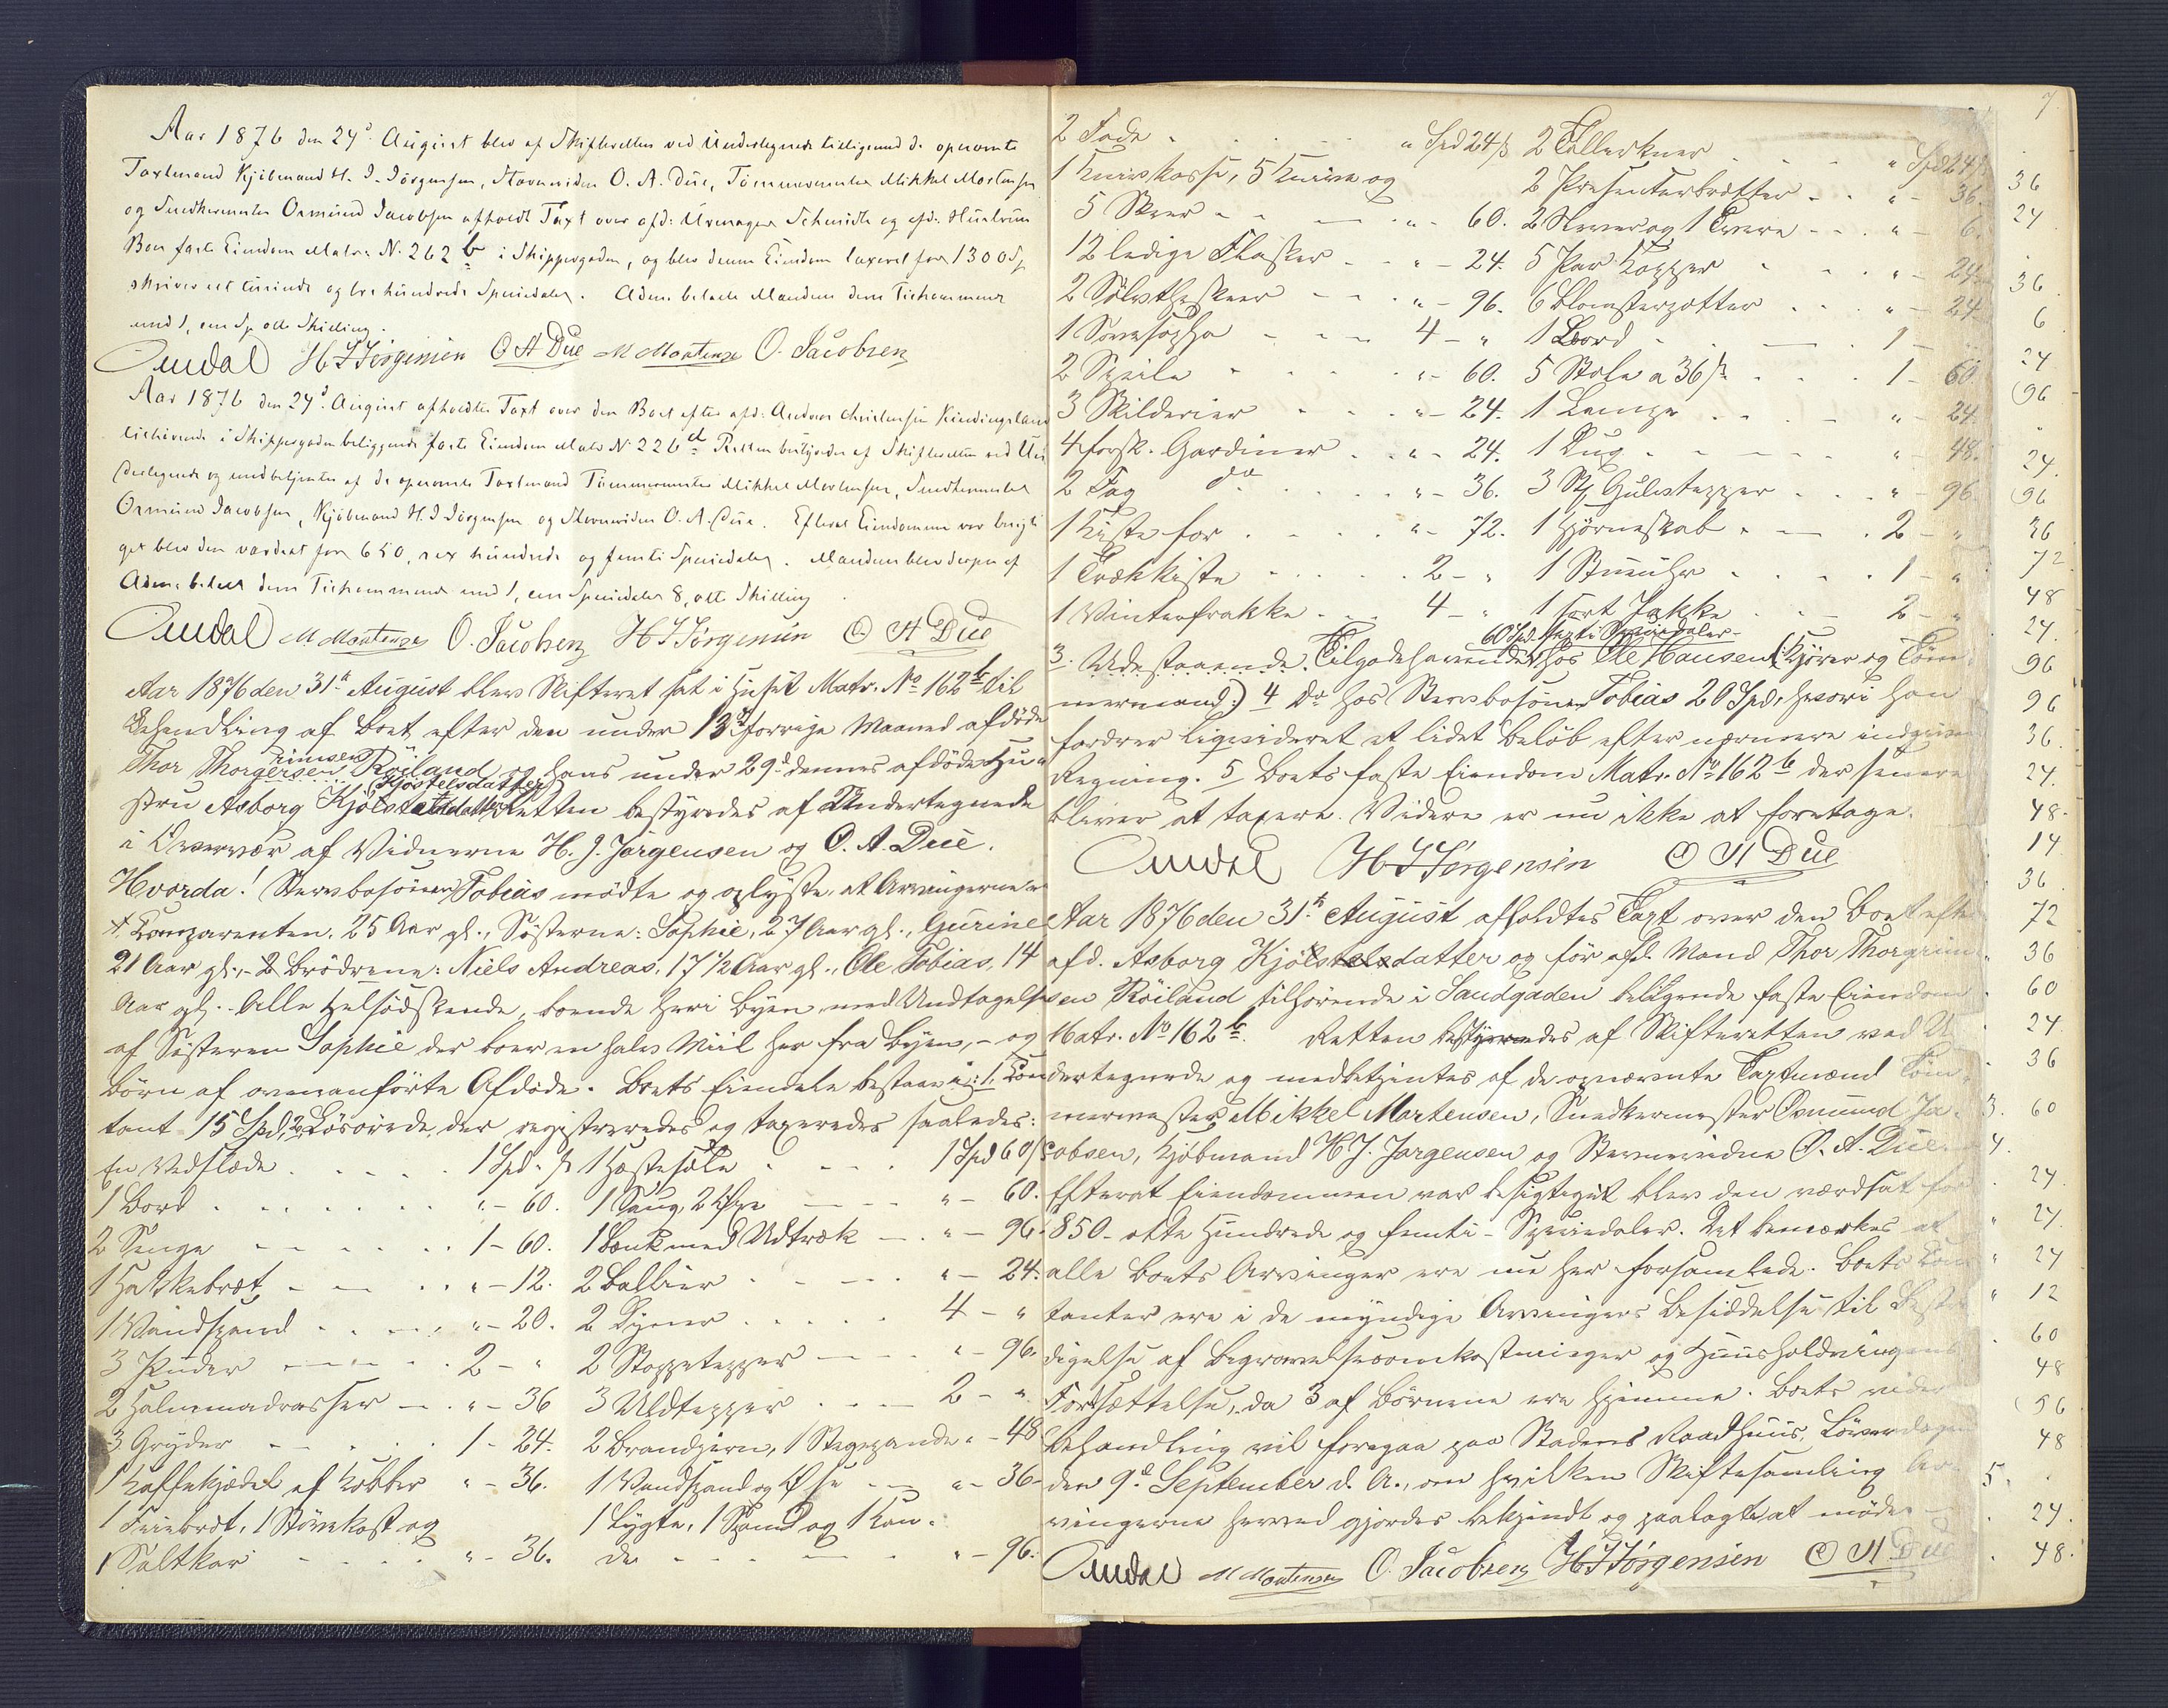 Aar 1876 den 24d August blev af Skifteretten ved Undertegnede tilligemed de opnævnte
Taxtmænd Kjøbmand H. J. Jörgensen, Stævnevidne O. A. Due, Tömmermester Mikkel Mortensen
og Snedkermester Osmund Jacobsen afholdt Taxt over afd: Urmager Schmidts og afd. Hustrues
Boes faste Eiendom Matr. No 262 b i Skippergaden, og blev denne Eiendom taxeret for 1300 Sp
skriver eet tusinde og tre hundrede Speciedaler. betalte Mændene deres Tilkommende
med 1, een Sp otte Skilling.
Omdal H J Jörgensen O A Due M Mortensen O. Jacobsen
Aar 1876 den 24d August afholdtes Taxt over den Boet efter afd: Andreas Christensen Kindingsland
tilhørende i Skippergaden beliggende faste Eiendom Matr No 226 d Retten bestyredes af Skifteretten ved Un
dertegnede og medbetjentes af de opnævnte Taxtmænd Tömmermester Mikkel Mortensen, Snedkermester
Osmund Jacobsen, Kjöbmand H. J Jörgensen og Stævnevidne O. A. Due. Efterat Eiendommen var besigti
get blev den værdsat for 650, sex hundrede og femti Speciedaler. Mændene blev derpaa af
betalt deres Tilkommende med 1, een Speciedaler 8, otte Skilling
Omdal M Mortensen O. Jacobsen H J Jörgensen O A Due
Aar 1876 den 31te August blev Skifteret sat i Huset Matr. No 162 b til
Behandling af Boet efter den under 13de forrige Maaned afdöde
rimsen
Thor Thorgersen Röiland og hans under 29d dennes afdöde Hu-
Kjöstelsdatter
stru Asborg Kjölstelsdatter Retten bestyredes af Undertegnede
i Overvær af Vidnerne H. J. Jörgensen og O. A. Due.
Hvorda! Stervbosönnen Tobias mödte og oplyste, at Arvingerne er
Comparenten, 25 Aar gl., Söstrene: Sophie, 27 Aar gl., Gurine
21 Aar gl., - 2 Brödrene: Niels Andreas, 17 1/2 Aar gl., Ole Tobias, 14
Aar gl. - Alle Helsödskende, boende her i Byen med Undtagelse
af Sösteren Sophie der boer en halv Miil her fra Byen, - og
Börn af ovenanförte Afdöde. Boets Eiendele bestaar i: 1, Con
tant 15 Spd, 2, Lösörede, der registreredes og taxeredes saaledes:
En Vedslæde . . . 1 Spd " ß 1 Hestesæle . . . 1 Spd 60 ß
1 Bord . . . " - 60. 1 Saug, 2 Öxe . . . " - 60.
2 Senge . . . 1 - 60. 1 Bænk med Udtræk . . . " - 96.
1 Hakkebræt . . . " - 12. 2 Ballier . . . " - 24.
1 Vandspand . . . " - 20. 2 Dyner . . . 4 - "
3 Puder . . . 2 - " 2 Stoppetepper . . . " - 96.
2 Halmmadrasser . . . " - 36 3 Uldtepper . . . 2 - "
3 Gryder . . . 1 - 24. 2 Brandjern, 1 Stegepande " - 48
1 Kaffekjedel af Kobber " - 36. 1 Vandspand og Öse . . . " - 36
1 Feiebræt, 1 Stövekost og 1 Lygte, 1 Spand og 1 Kan-
1 Saltkar . . . " - 36. de . . . " - 96.
7
2 Fade . . . " Spd 24 ß 2 Tallerkner . . . " Spd 24 ß
1 Knivskasse, 5 Knive og 2 Presenterbrætter . . " - 36.
5 Skeer . . . " - 60. 2 Stever og 1 . . . " - 6.
12 ledige Flasker . . . " - 24. 5 Par Kopper . . . " - 24.
2 Sölvtheskeer . . . " - 96. 6 Blomsterpotter . . . " - 24
1 Sovesopha . . . 4 - " 1 Bord . . . 1 -
2 Speile . . . " - 60. 5 Stole a 36 ß . . . 1 - 60.
3 Skilderier . . . " - 24. 1 Lampe . . . " 24.
4 forsk. Gardiner . . " - 24. 1 Dug . . . " - 48.
2 Fag do . . . " - 36. 3 Stk Gulvtepper . . . " - 96.
1 Kiste for . . . " - 72. 1 Hjörneskab . . . 2 - "
1 Trækkiste . . . 2 - " 1 Stueuhr . . . 1 - "
1 Vinterfrakke . . . 4 - " 1 sort Jakke . . . 2 - "
60 Spd. sexti Speciedaler -
3. Udestaaende Tilgodehavender hos Ole Hansen (Kjörer og Töm
mermand) 4 Do hos Stervbosönnen Tobias 20 Spd, hvori han
fordrer liqvideret et lidet Belöb efter nærmere indgiven
Regning. 5 Boets faste Eiendom Matr. No 162 b der senere
bliver at taxere. Videre er nu ikke at foretage.
Omdal H J Jörgensen O A Due
Aar 1876 den 31te August afholdtes Taxt over den Boet efter
afd. Asborg Kjölstelsdatter og för afd. Mand Thor Thorgrim
sen Röiland tilhörende i Sandgaden beliggende faste Eiendom
Matr. No 162 b. Retten bestyredes af Skifteretten ved Un
dertegnede og medbetjentes af de opnævnte Taxtmænd Töm
mermester Mikkel Mortensen, Snedkermester Osmund Ja-
cobsen, Kjöbmand H J. Jörgensen og Stævnevidne O. A. Due.
Efterat Eiendommen var besigtiget blev den værdsat for
850 - otte Hundrede og femti - Speciedaler. Det bemærkes at
alle Boets Arvinger ere nu her forsamlede. Boets Con
tanter ere i de myndige Arvingers Besiddelse til Bestri
digelse af Begravelsesomkostninger og Huusholdningens
Fortsættelse, da 3 af Börnene ere hjemme. Boets videre
Behandling vil foregaa paa Stadens Raadhuus, Löverdagen
den 9d September d. A., om hvilken Skiftesamling Ar-
vingerne herved gjordes bekjendt og paalagt at möde. -
Omdal M Mortensen O. Jacobsen H J Jörgensen O A Due
36
24
36
6
24
96
24.
96
36
72
48
24.
96
96
36.
24.
48.
14
36
72
36
60
24
36
3. 60
4.
24.
24.
24
12
60
48
96
48
5.
24.
48.